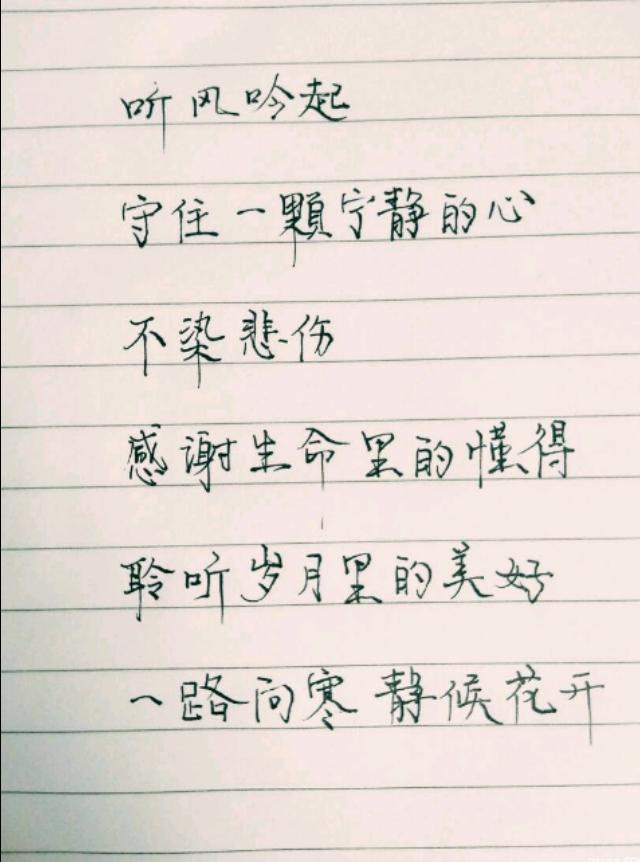 听风吟起
守住一颗宁静的心
不染悲伤
感谢生命里的懂得
聆听岁月里的美好
一路向寒 静候花开